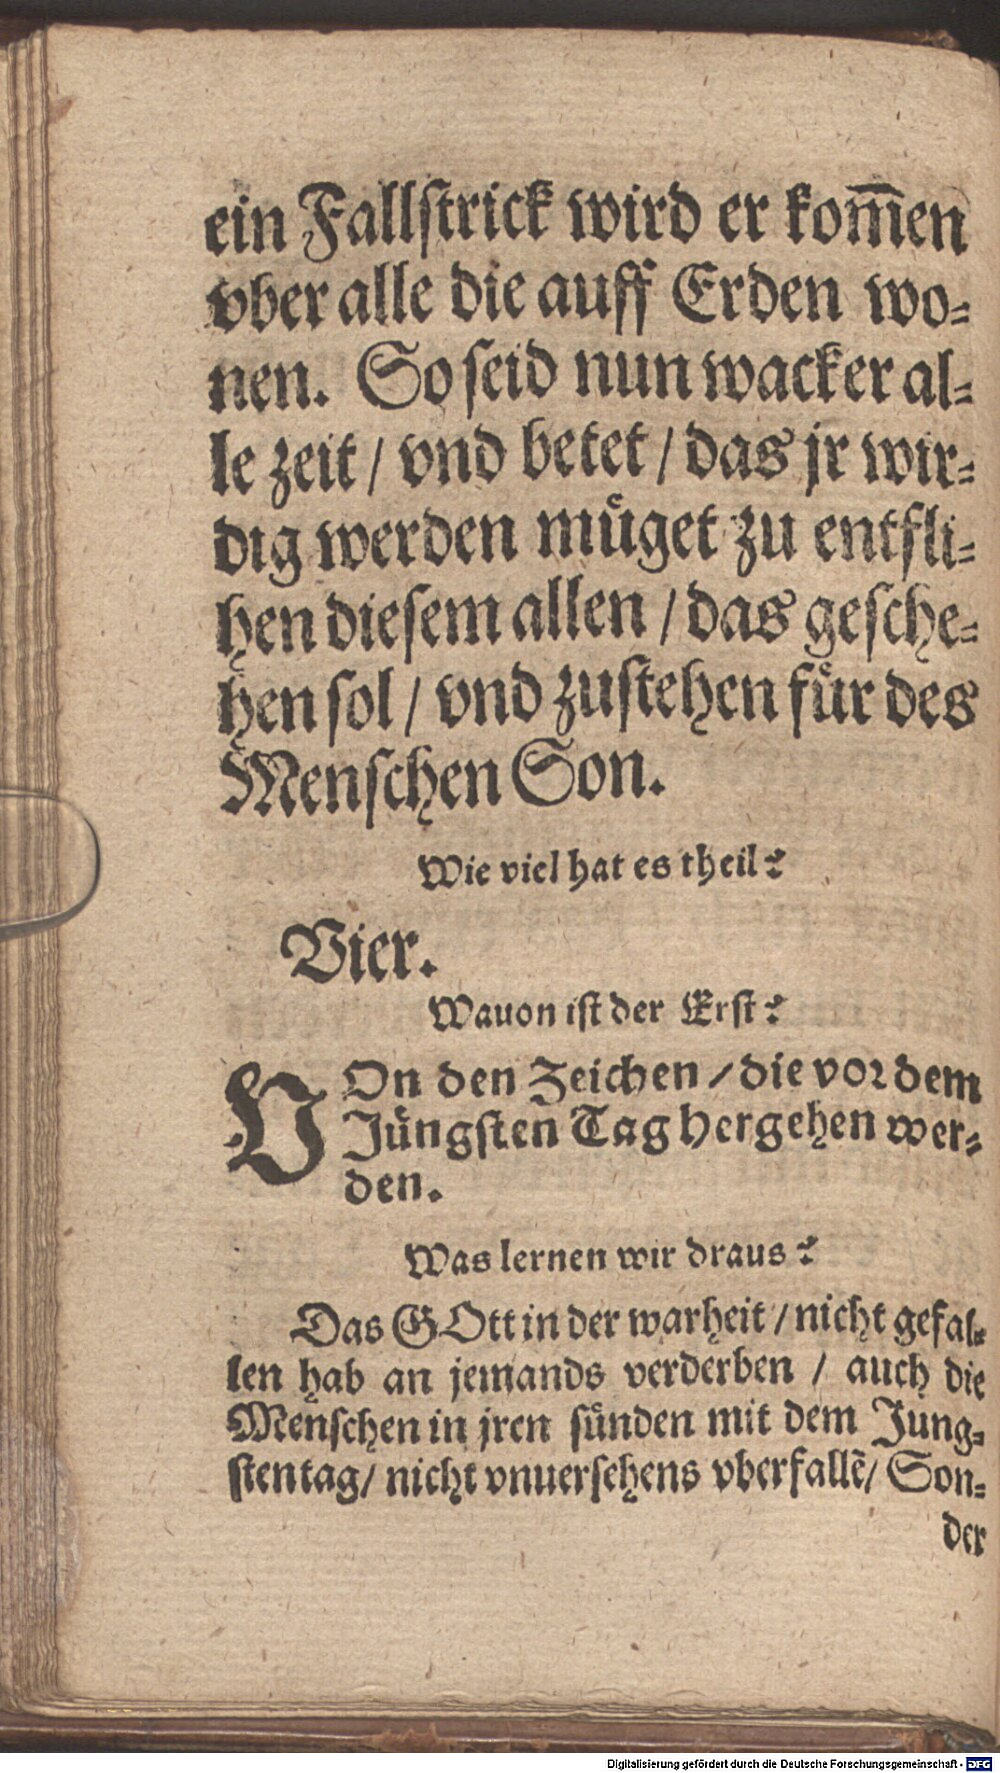 ein Fallſtrick wird er kom̃en
vber alle die auff Erden wo⸗
nen. So ſeid nun wacker al⸗
le zeit / vnd betet / das jr wir⸗
dig werden muͤget zu entfli⸗
hen dieſem allen / das geſche⸗
hen ſol / vnd zuſtehen fuͤr des
Menſchen Son.
Wie viel hat es theil?
Vier.
Wauon iſt der Erſt?
VOn den Zeichen / die vor dem
Juͤngſten Tag hergehen wer⸗
den.
Was lernen wir draus?
Das GOtt in der warheit / nicht gefal⸗
len hab an jemands verderben / auch die
Menſchen in jren ſuͤnden mit dem Jung⸗
ſtentag / nicht vnuerſehens vberfallẽ / Son⸗
der
Digitalisierung gefördert durch die Deutsche Forschungsgemeinschaft - DFG